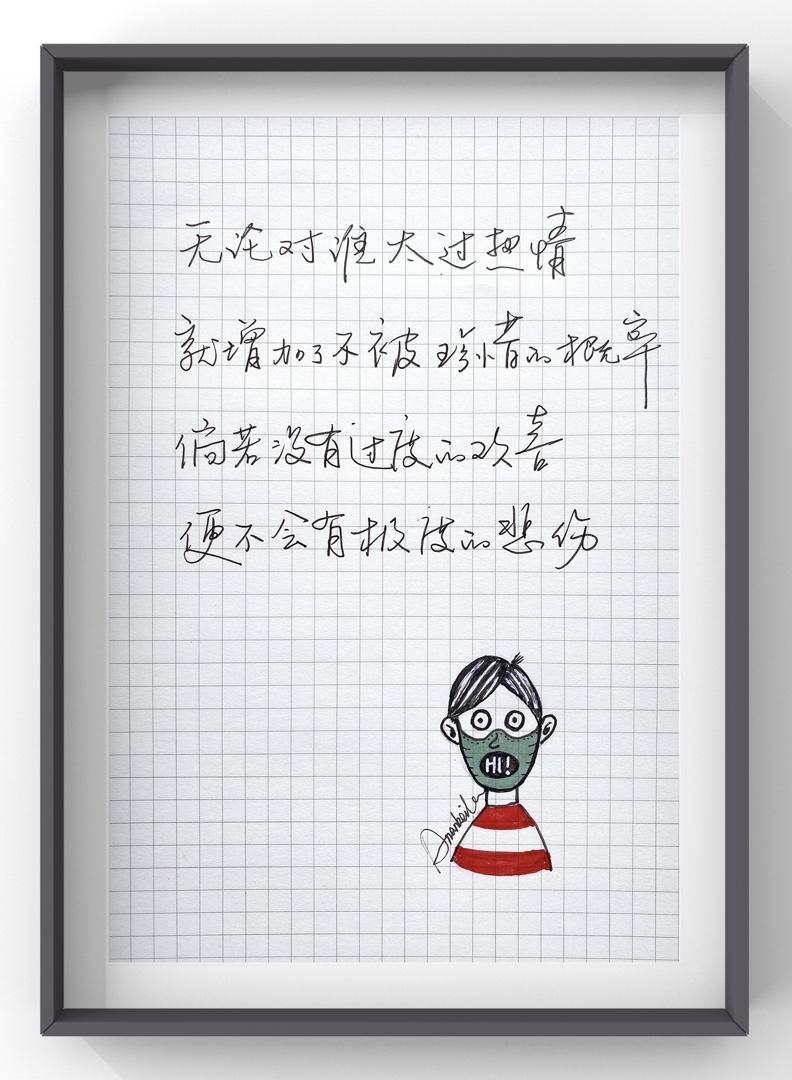 无论对谁太过热情
就增加了不被珍惜的概率
倘若没有过度的欢喜
便不会有极度的悲伤
HI!